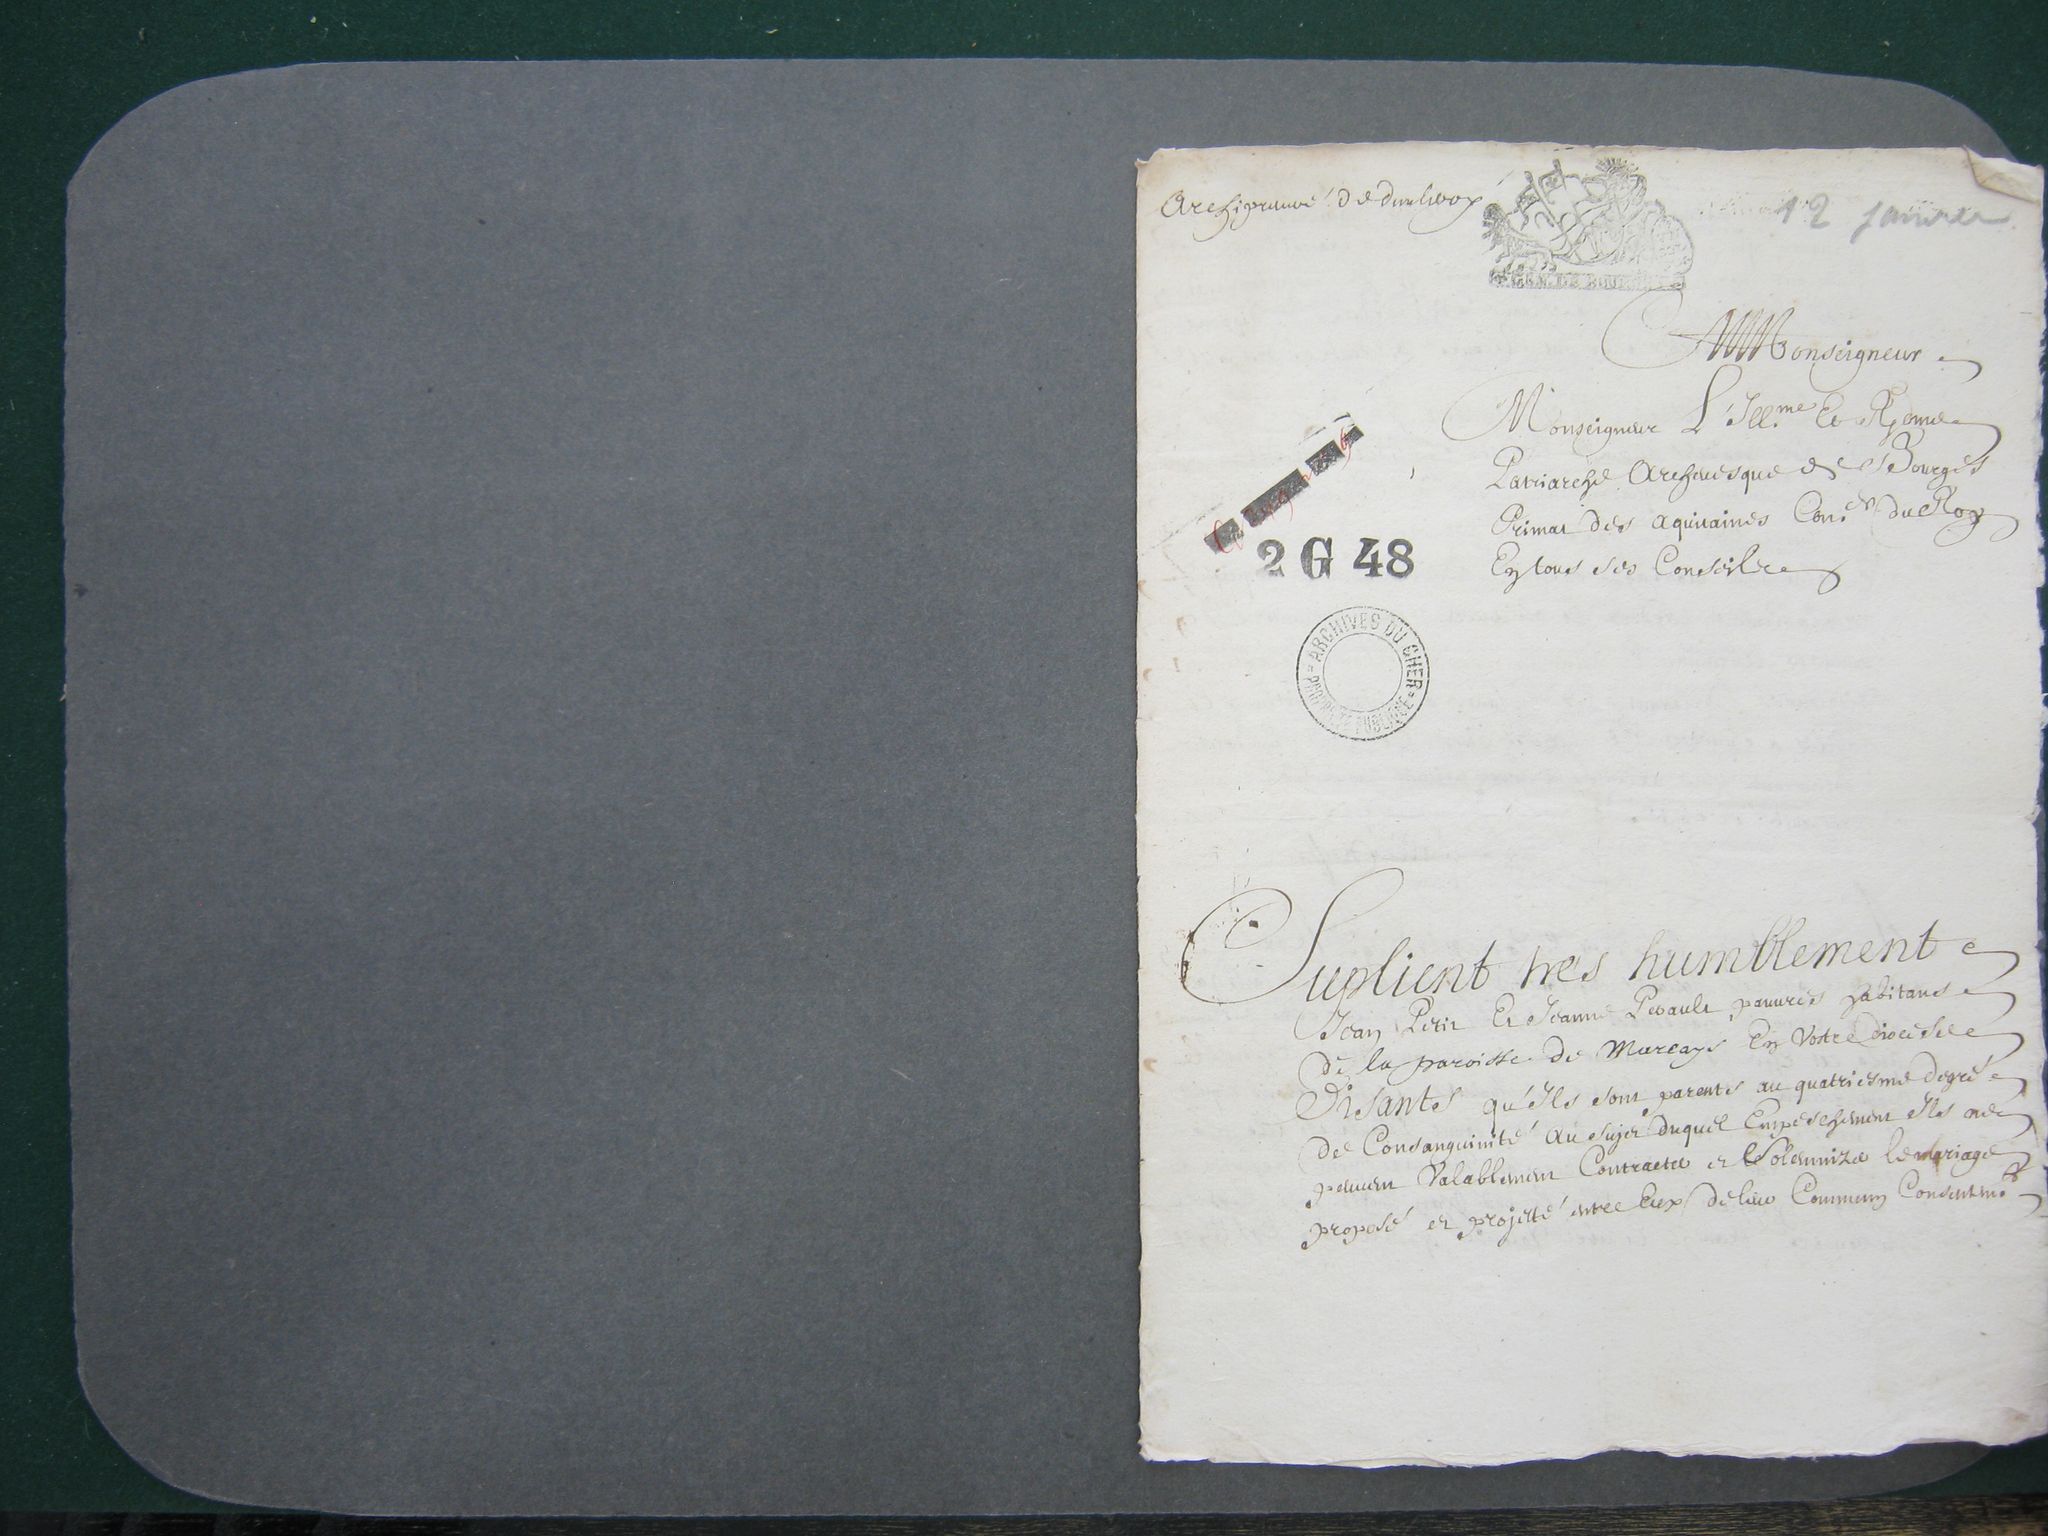 Archipreuvé de dunleroy
GEN. DE BOURGES
12 janvier
A Monseigneur
Monseigneur L'Illme Et Rme
Patriarche Archevesque de Bourges
Primat des aquitaines Coner du Roy
En tous ses Conseilz
2 G 48
ARCHIVES DU CHER
PROPRIÉTÉ PUBLIQUE
Suplient tres humblement
Jean Petit Et Jeanne Perault pauvres habitans
de la paroisse de Marcays En Vostre diocese
Disants qu'ils sont parents au quatriesme degré
de Consanguinité au sujet duquel Empeschement ils ne
peuvent Valablement Contracter et Solemnizer le mariage
proposé et projetté entre Eux de leur Commun Consentmt